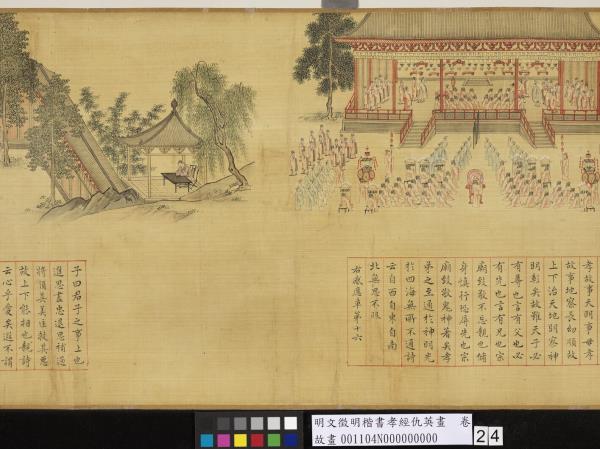 孝故事天明事母孝
故事地察長幼順故
上下治天地明察神
明彰矣故雖天子必
有尊也言有父也必
有先也言有兄也宗
廟致敬不忘親也脩
身慎行恐辱先也宗
廟致敬鬼神著矣孝
弟之至通於神明光
於四海無所不通詩
云自西自東自南
北無思不服
右感應章第十六
子曰君子之事上也
進思盡忠退思補過
將順其美匡救其惡
故上下能相也親詩
云心乎愛矣遐不謂
明文徵明楷書孝經仇英畫 卷
故畫 001104N000000000
24